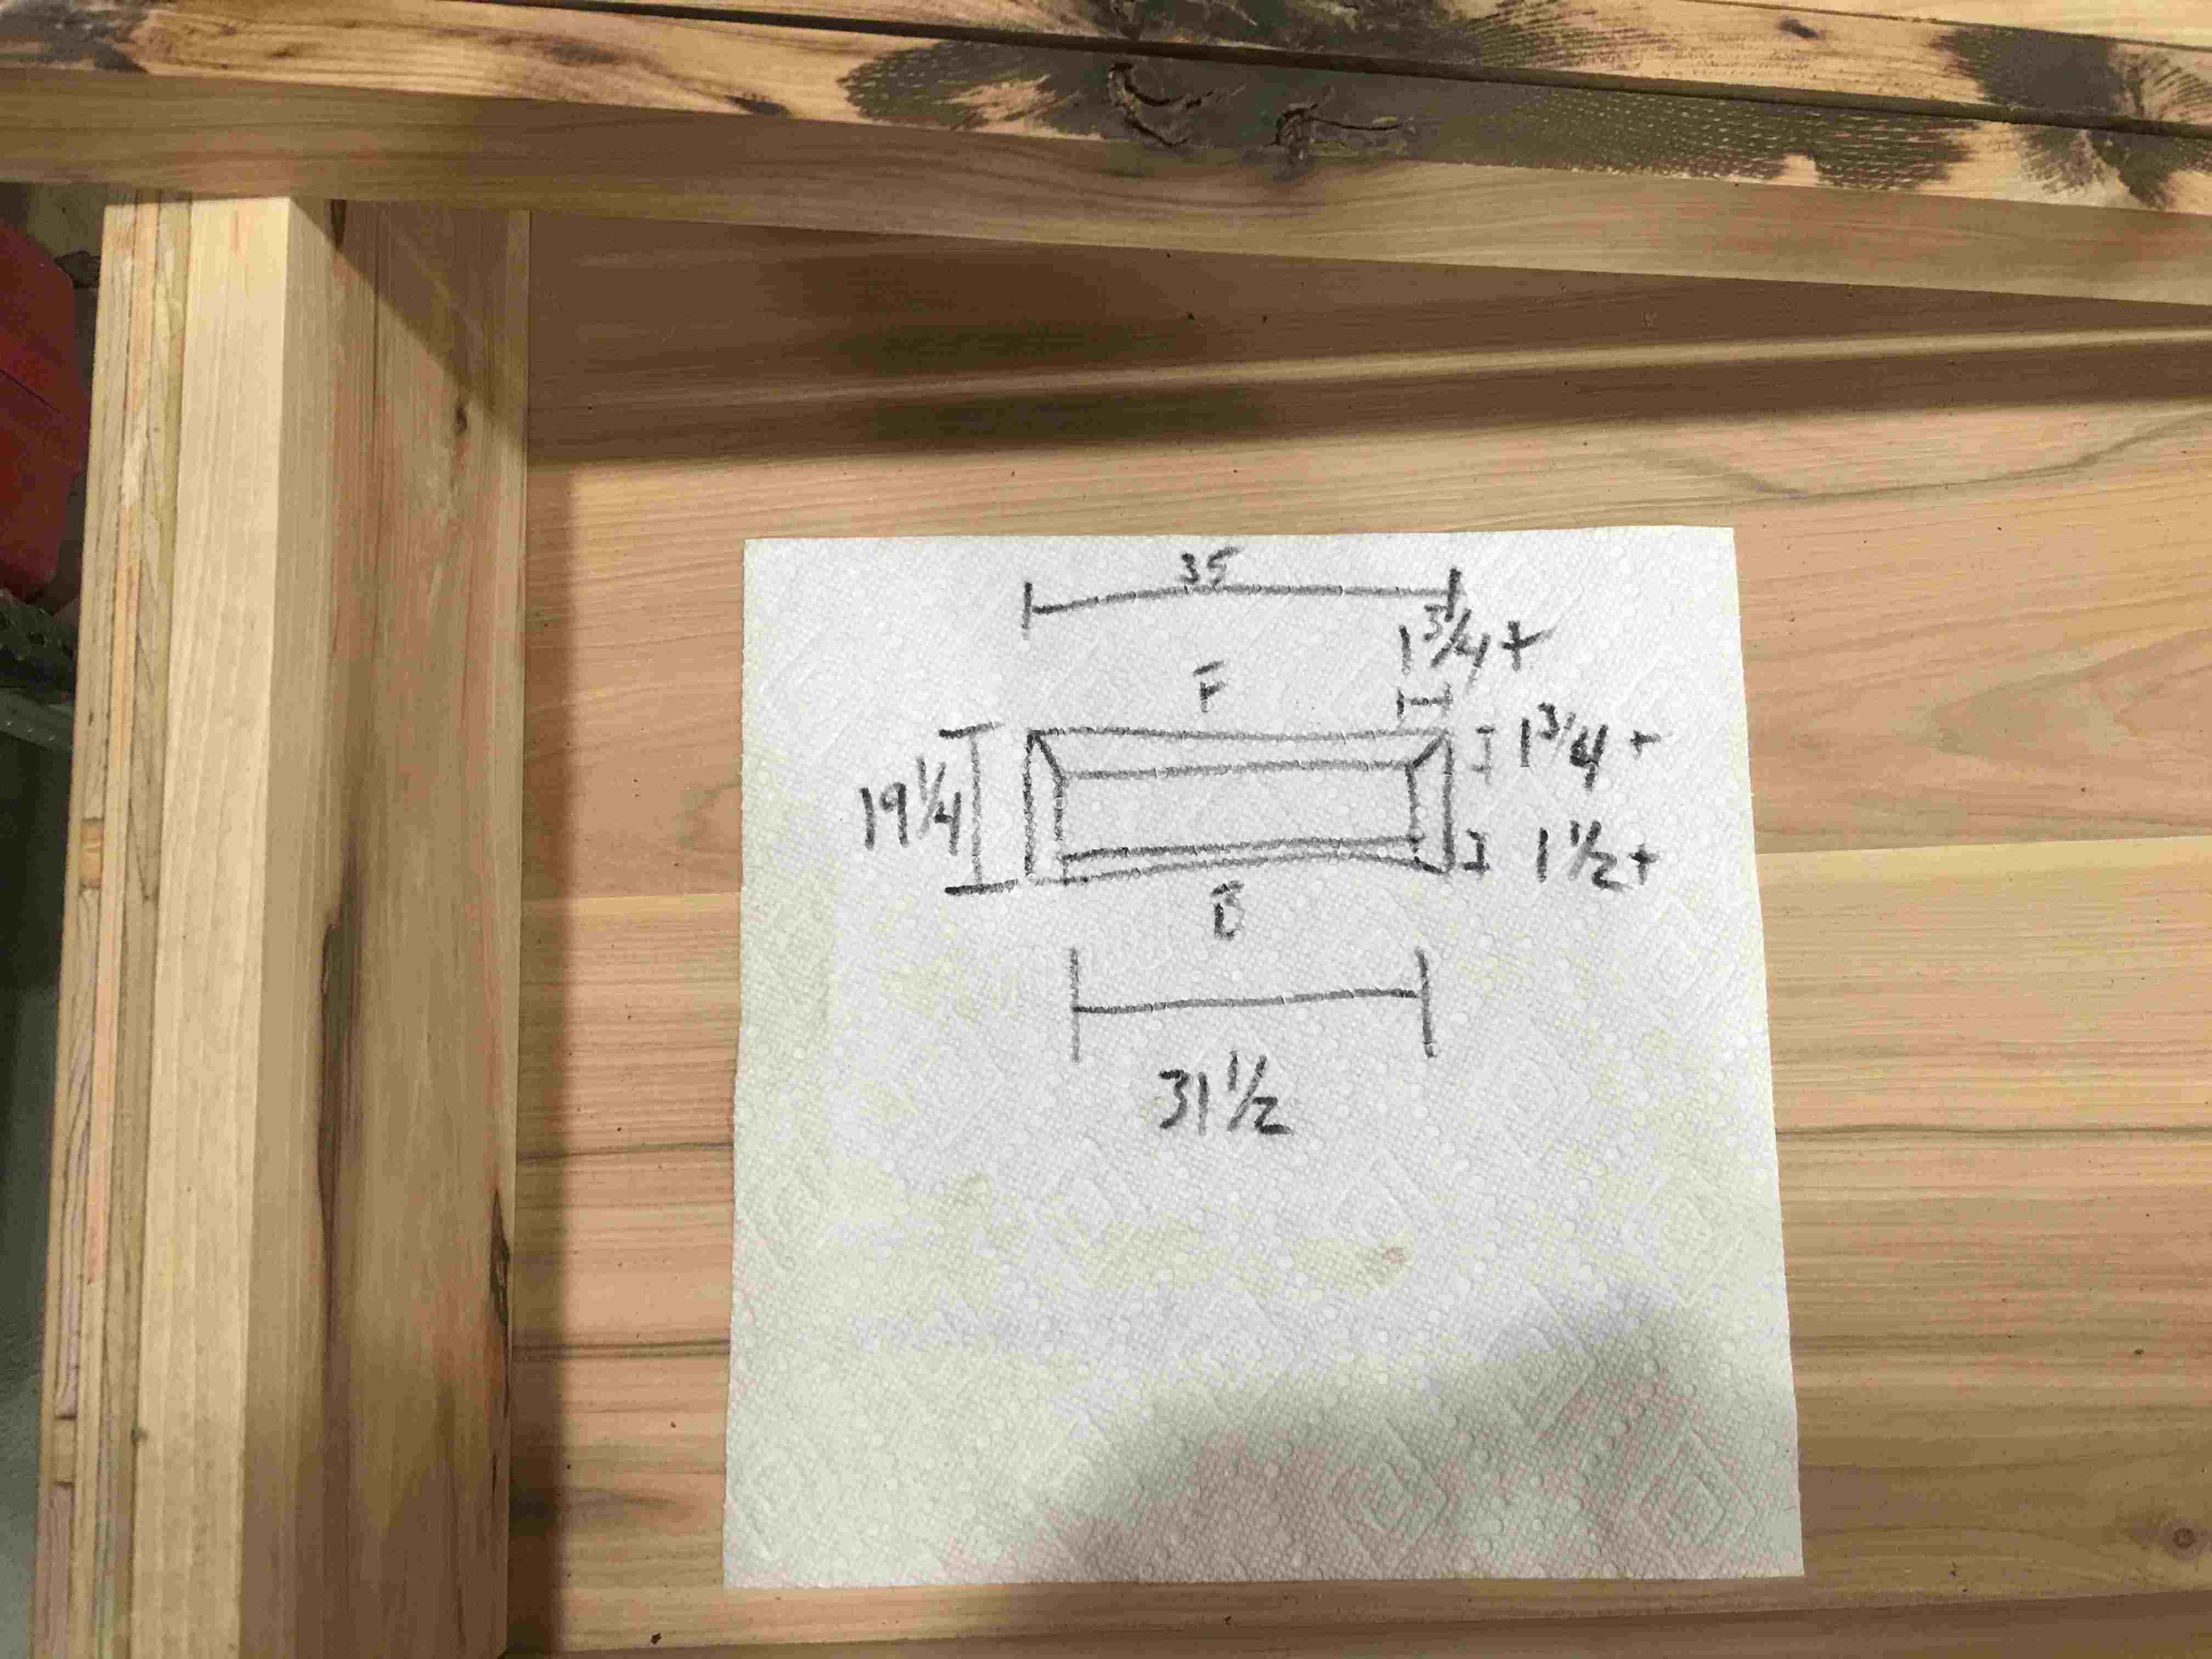 35
1 3/4 +
F
1 3/4 +
19 1/4
1 1/2 +
B
31 1/2